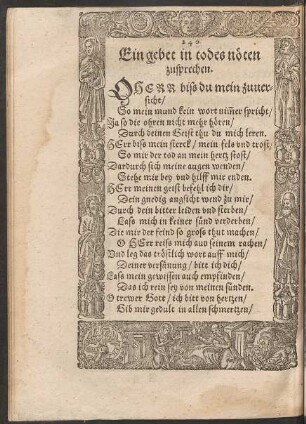 240
Ein gebet in todes nöten
zusprechen.
O HERR biss du mein zuuer-
sicht/
So mein mund kein wort nim̃er spricht/
Ja so die ohren nicht mehr hören/
Durch deinen Geist thu du mich leren.
HErr biss mein sterck/ mein fels vnd trost/
So mir der tod an mein hertz stost/
Dardurch sich meine augen wenden/
Stehe mir bey vnd hilff mir enden.
HErr meinen geist befehl ich dir/
Dein gnedig angsicht wend zu mir/
Durch dein bitter leiden vnd sterben/
Lass mich in keiner sünd verderben/
Die mir der feind so gross thut machen/
O HErr reiss mich aus seinem rachen/
Vnd leg das tröstlich wort auff mich/
Deiner versünung/ bitt ich dich/
Lass mein gewissen auch empfinden/
Das ich rein sey von meinen sünden.
O trewer Gott/ ich bitt von hertzen/
Gib mir gedult in allen schmertzen/